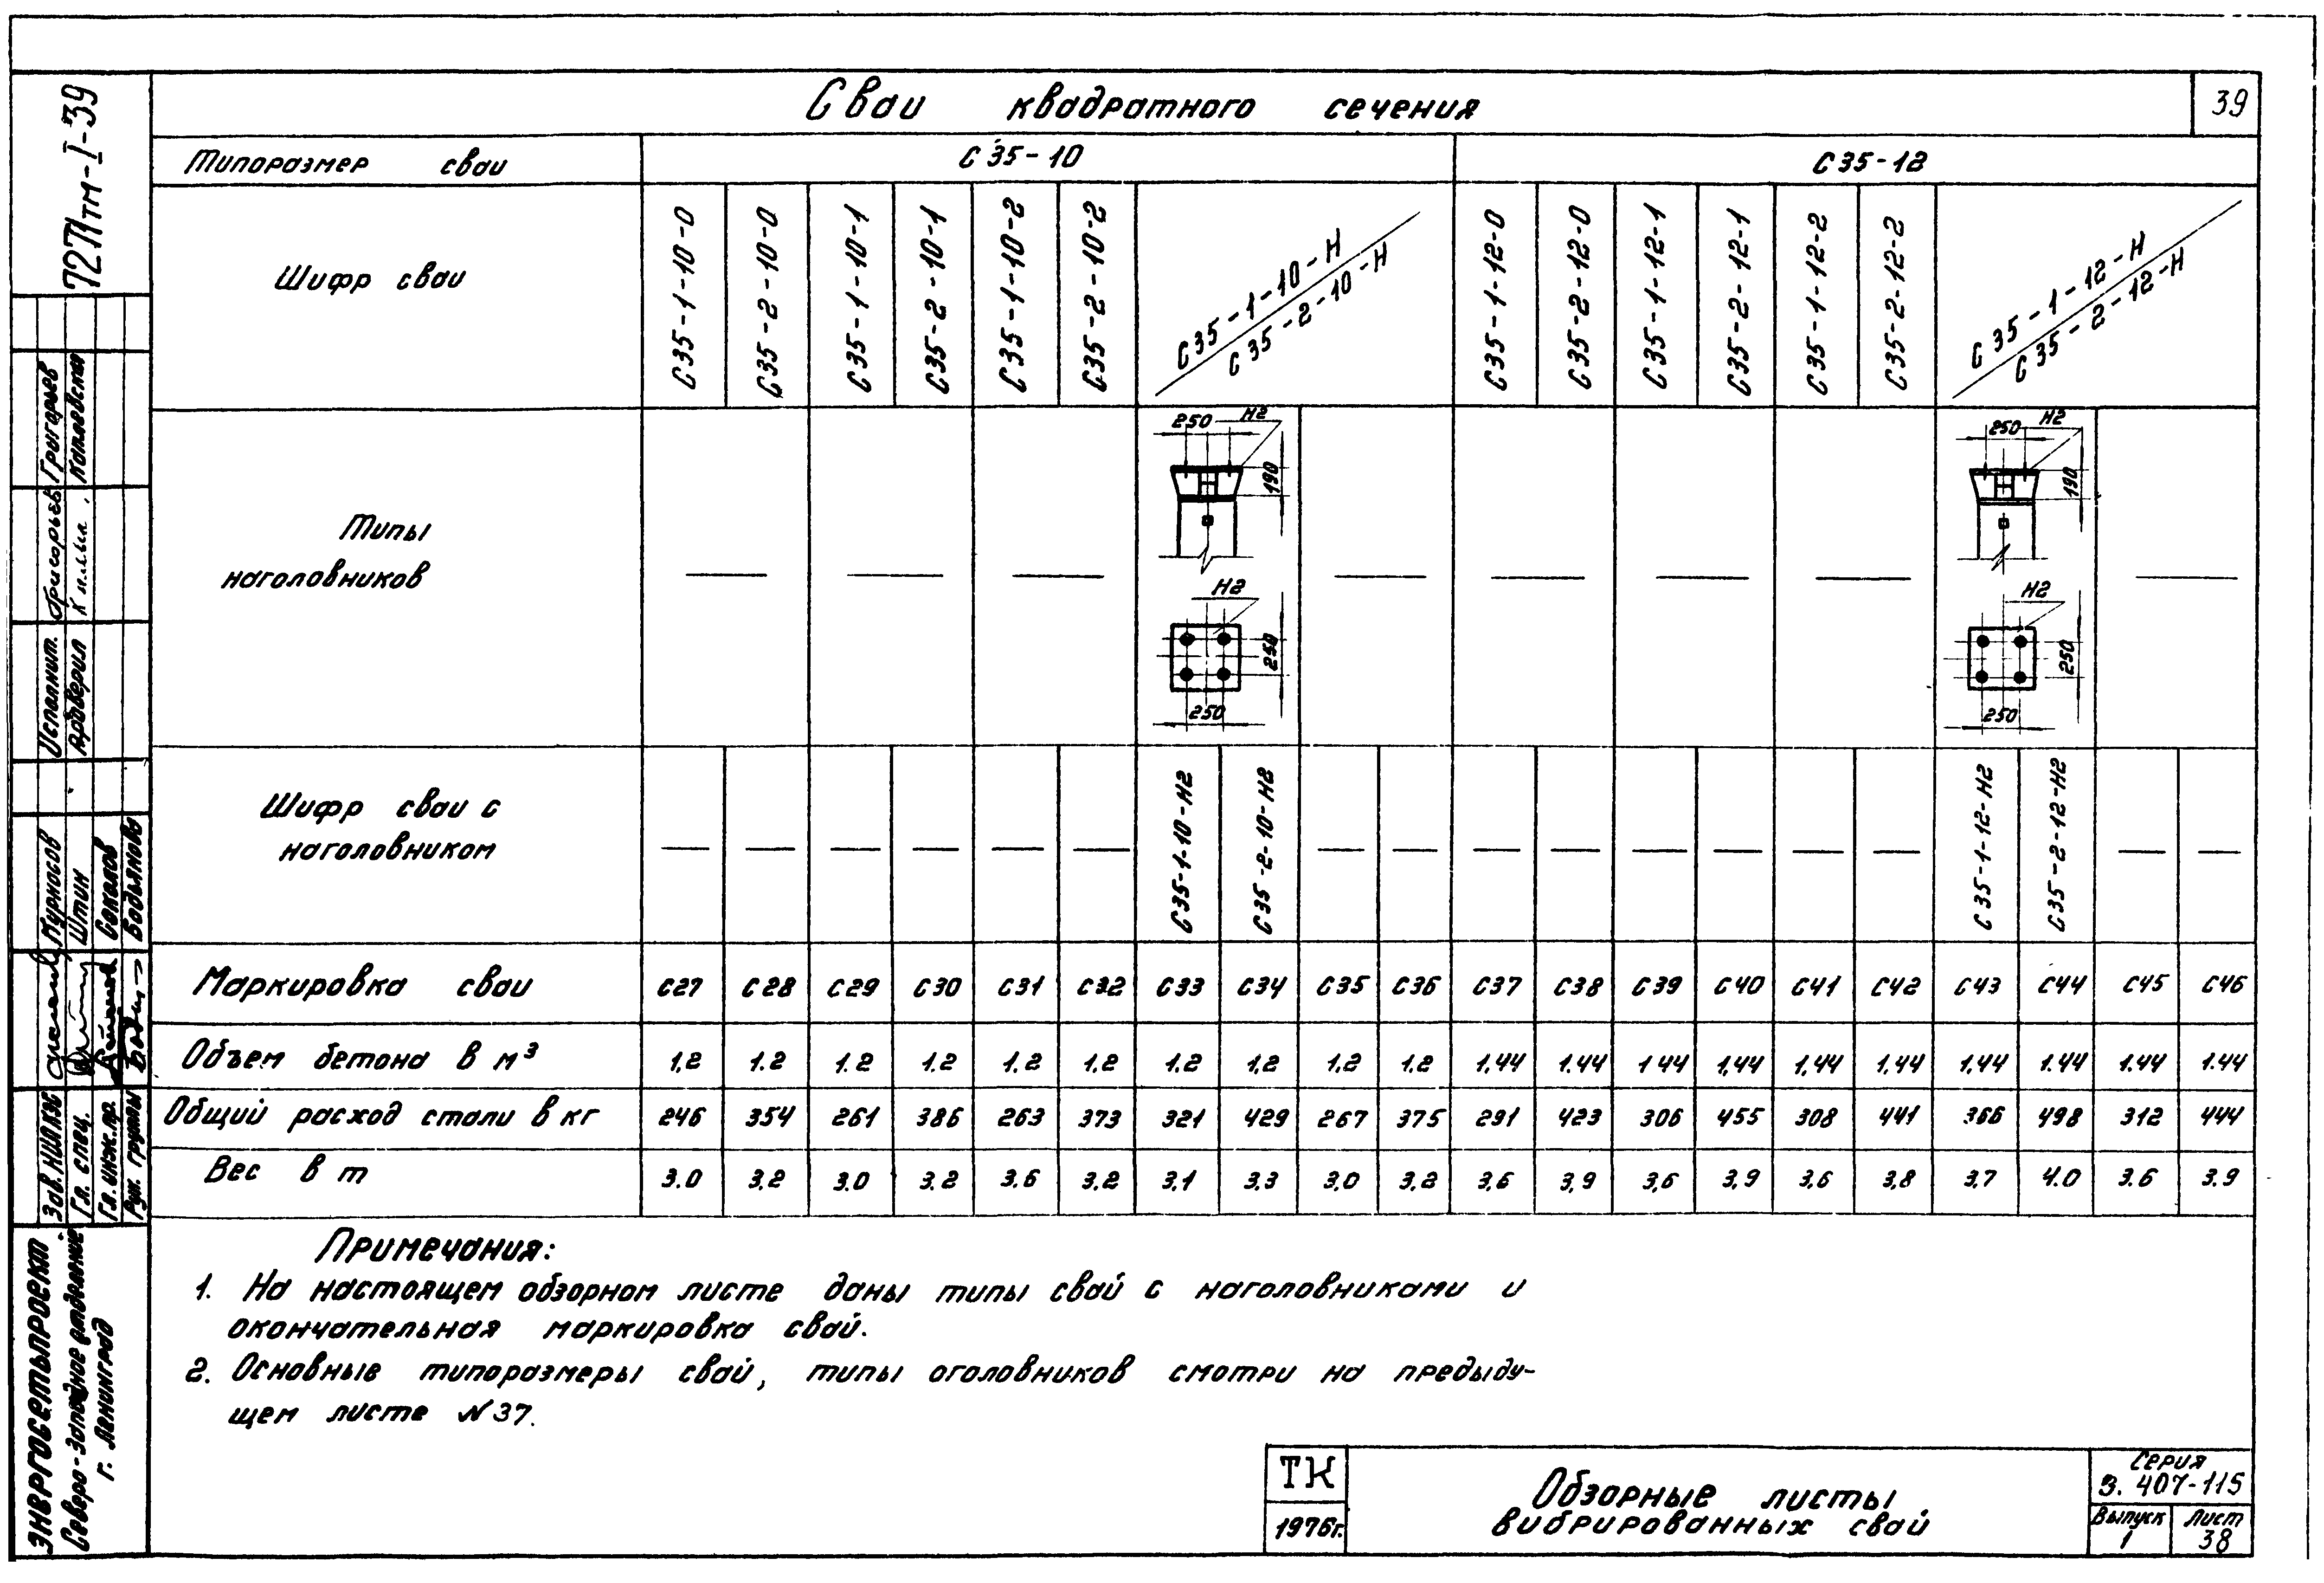 Сваи квадратного сечения
39
Типоразмер сваи
С35-10
С35-12
Шифр сваи
С35-1-10-0
С35-2-10-0
С35-1-10-1
С35-2-10-1
С35-1-10-2
С35-2-10-2
С35-1-10-Н
С35-2-10-Н
С35-1-12-0
С35-2-12-0
С35-1-12-1
С35-2-12-1
С35-1-12-2
С35-2-12-2
С35-1-12-Н
С35-2-12-Н
Типы
наголовников
250 Н2
190
Н2
250
250
250 Н2
190
Н2
250
250
Шифр сваи с
наголовником
— — — — — — С35-1-10-Н2 С35-2-10-Н2 — — — — — — — — С35-1-12-Н2 С35-2-12-Н2 — —
Маркировка сваи С27 С28 С29 С30 С31 С32 С33 С34 С35 С36 С37 С38 С39 С40 С41 С42 С43 С44 С45 С46
Объем бетона в м³ 1,2 1.2 1.2 1.2 1.2 1.2 1.2 1,2 1,2 1.2 1,44 1.44 1 44 1,44 1,44 1,44 1,44 1.44 1.44 1.44
Общий расход стали в кг 246 354 261 386 263 373 321 429 267 375 291 423 306 455 308 441 366 498 312 444
Вес в т 3.0 3,2 3.0 3.2 3.6 3.2 3,1 3,3 3,0 3,2 3,6 3,9 3,6 3,9 3,6 3,8 3,7 4.0 3.6 3.9
Примечания:
1. На настоящем обзорном листе даны типы свай с наголовниками и
окончательная маркировка свай.
2. Основные типоразмеры свай, типы оголовников смотри на предыду-
щем листе N37.
ТК
1976г.
Обзорные листы
вибрированных свай
Серия
3.407-115
Выпуск
1
Лист
38
7271тм-I-39
Исполнит. Григорьев
Проверил
Зав. НИЛКЖ Мурнасов
Гл. спец. Штин
Гл. инж. пр. Соколов
Рук. группы
Энергосетьпроект
Северо-Западное отделение
г. Ленинград